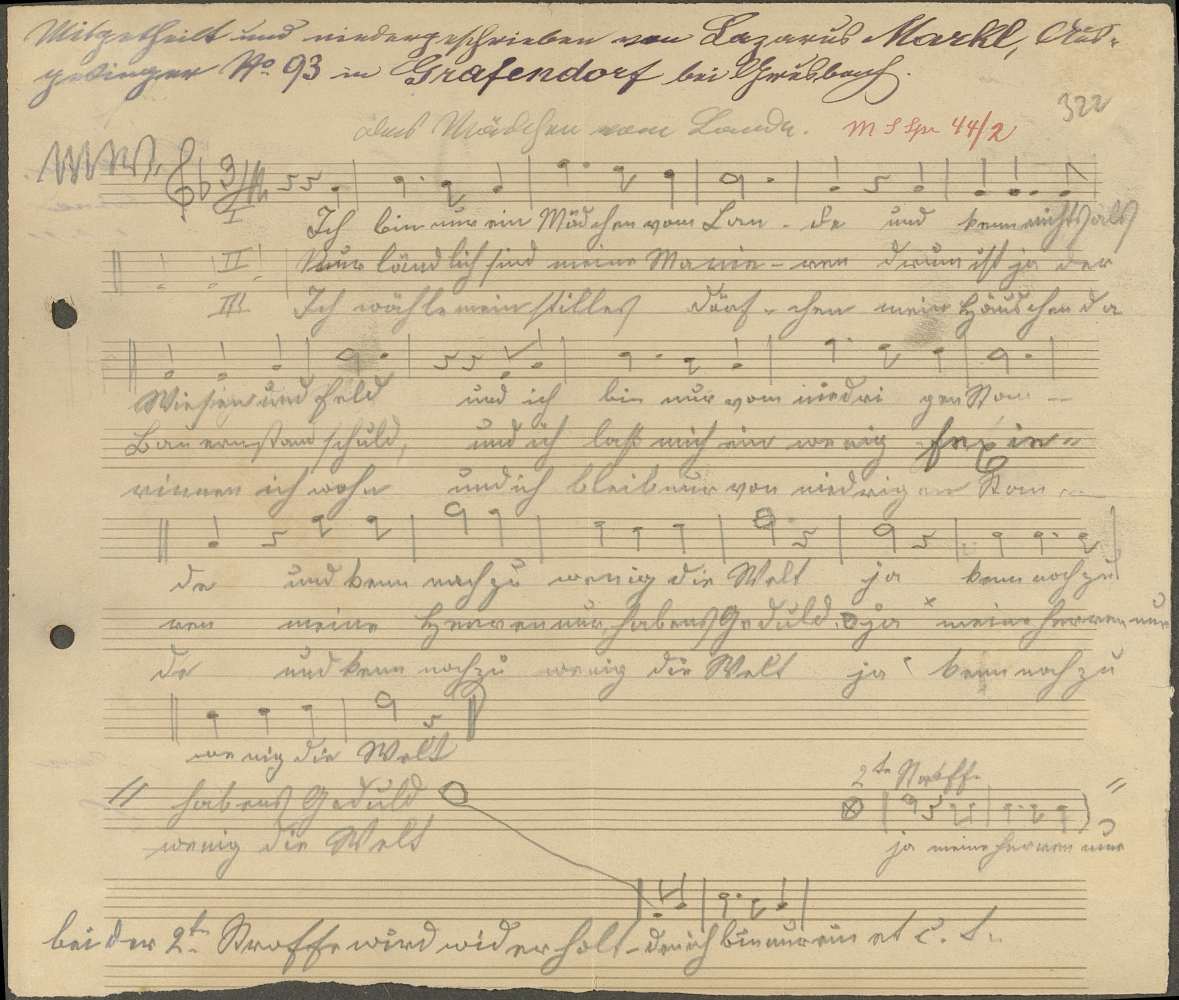 Mitgetheilt und niedergeschrieben von Lazarus Markl, Aus-
gedinger No 93 in Grafendorf bei
322
das Mädchen vom Lande. M S Spr 44/2
3/4
I Ich bin nur ein Mädchen vom Lan - de und kenn nichts als
II Nur ländlich sind meine Manie - ren drum ist ja der
III Ich wähle mein stilles Dörf - chen mein Häuschen da
Wiesen und Feld und ich bin nur vom niedri gen Stan -
Bauernstand schuld, und ich laß mich ein wenig fexie -
rinnen ich wohn und ich bleib nur von niedrigen Stan -
de und kenn noch zu wenig die Welt ja kenn noch zu
ren meine Herren nur habens Geduld. ja x meine Herren nur
de und kenn noch zu wenig die Welt ja kenn noch zu
wenig die Welt
2te Stroffe
// habens Geduld
ja meine Herren nur
wenig die Welt
bei der 2ten Stroffe wird widerholt - den ich bin nur ein et c. t.